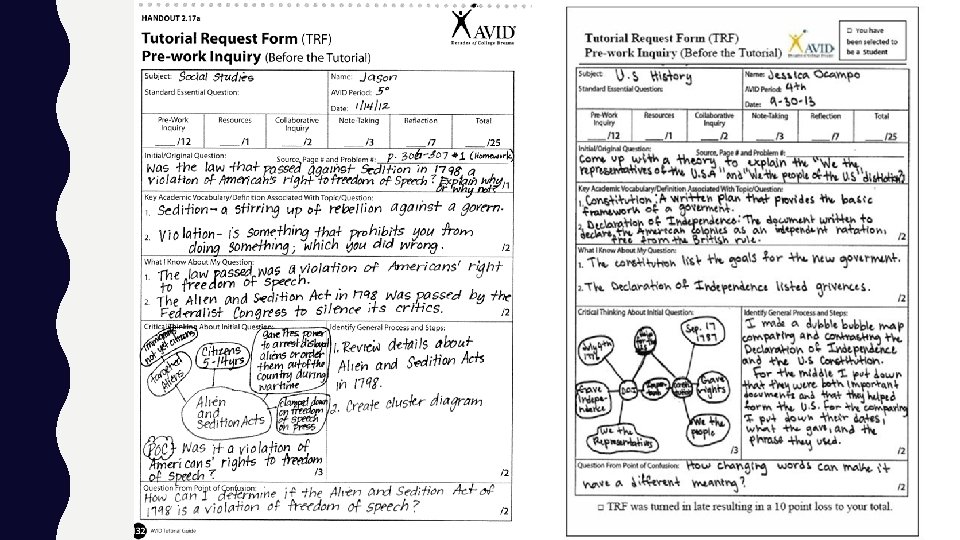 HANDOUT 2.17a
AVID
Decades of College Dreams
Tutorial Request Form (TRF)
Pre-work Inquiry (Before the Tutorial)
Subject: Social Studies
Name: Jason
Standard Essential Question:
AVID Period: 5°
Date: 1/14/12
Pre-Work Inquiry
Resources
Collaborative Inquiry
Note-Taking
Reflection
Total
/12
/1
/2
/3
/7
/25
Initial/Original Question:
Source, Page # and Problem #: p. 306-307 #1 (Homework)
Was the law that passed against Sedition in 1798, a
violation of American's right to freedom of Speech? Explain why
or why not?
/1
Key Academic Vocabulary/Definition Associated With Topic/Question:
1. Sedition - a stirring up of rebellion against a govern.
2. Violation - is something that prohibits you from
doing something; which you did wrong.
/2
What I Know About My Question:
1. The law passed was a violation of Americans' right
to freedom of speech.
2. The Alien and Sedition Act in 1798 was passed by the
Federalist Congress to silence its critics.
/2
Critical Thinking About Initial Question:
Immigrants
not yet citizens
Targeted
Aliens
Citizens
5-14yrs
Gave Pres. power
to arrest disloyal
aliens or order
them out of the
country during
wartime
Alien
and
Sedition Acts
clamped down
on freedom
of speech
on press
POC Was it a violation of
Americans' rights to freedom
of speech?
/3
Identify General Process and Steps:
1. Review details about
Alien and Sedition Acts
in 1798.
2. Create cluster diagram
/2
Question From Point of Confusion:
How can I determine if the Alien and Sedition Act of
1798 is a violation of freedom of speech?
/2
132 AVID Tutorial Guide
Tutorial Request Form (TRF)
Pre-work Inquiry (Before the Tutorial)
AVID
□ You have
been selected to
be a Student
Subject: U.S History
Name: Jessica Ocampo
Standard Essential Question:
AVID Period: 4th
Date: 9-30-13
Pre-Work Inquiry
Resources
Collaborative Inquiry
Note-Taking
Reflection
Total
/12
/1
/2
/3
/7
/25
Initial/Original Question:
Source, Page # and Problem #:
Come up with a theory to explain the "We the
representatives of the U.S.A" and "We the people of the US"
Key Academic Vocabulary/Definition Associated With Topic/Question:
1. Constitution: A written plan that provides the basic
framework of a goverment.
2. Declaration of Independence: The document written to
declare the American colonies as an independent
free from the British rule.
/2
What I Know About My Question:
1. The constitution list the goals for the new goverment.
2. The Declaration of Independence listed grivences.
/2
Critical Thinking About Initial Question:
July 4th
1776
Sep. 17
1787
Gave
Indepe-
ndence
DOI
Gave
rights
We the
Representatives
We the
people
/3
Identify General Process and Steps:
I made a dubble bubble map
comparing and contrasting the
Declaration of Independence
and the U.S Constitution.
For the middle I put down
that they were both important
documents and that they helped
form the U.S. For the comparing
I put down their dates,
what the gave, and the
phrase they used.
/2
Question From Point of Confusion: How changing words can make it
have a different meaning?
/2
□ TRF was turned in late resulting in a 10 point loss to your total.